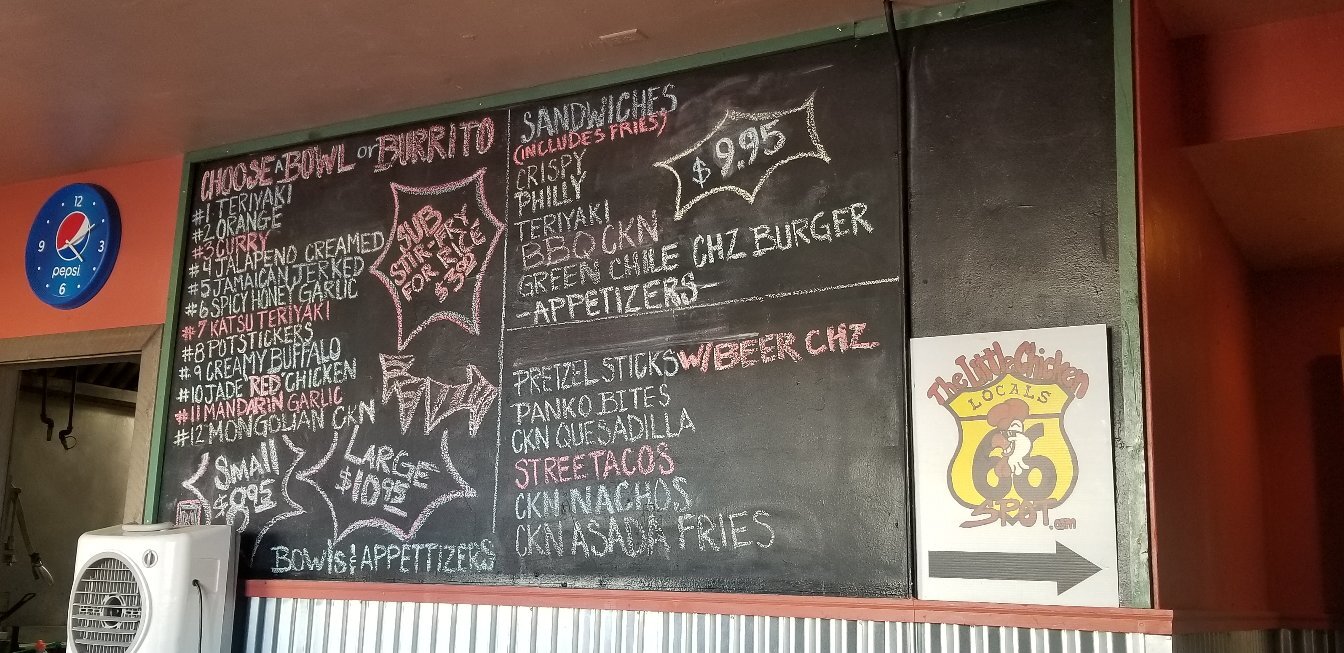 CHOOSE A BOWL or BURRITO
#1 TERIYAKI
#2 ORANGE
#3 CURRY
#4 JALAPENO CREAMED
#5 JAMAICAN JERKED
#6 SPICY HONEY GARLIC
#7 KATSU TERIYAKI
#8 POTSTICKERS
#9 CREAMY BUFFALO
#10 JADE RED CHICKEN
#11 MANDARIN GARLIC
#12 MONGOLIAN CKN
SUB
STIR-FRY
FOR RICE
$3.99
SMALL
$8.95
LARGE
$10.95
BOWLS & APPETTIZERS
SANDWICHES
(INCLUDES FRIES)
$9.95
CRISPY
PHILLY
TERIYAKI
BBQ CKN
GREEN CHILE CHZ BURGER
-APPETIZERS-
PRETZEL STICKS W/BEER CHZ.
PANKO BITES
CKN QUESADILLA
STREETACOS
CKN NACHOS
CKN ASADA FRIES
12
9 3
pepsi
6
The Little Chicken
LOCALS
66
SPOT.com